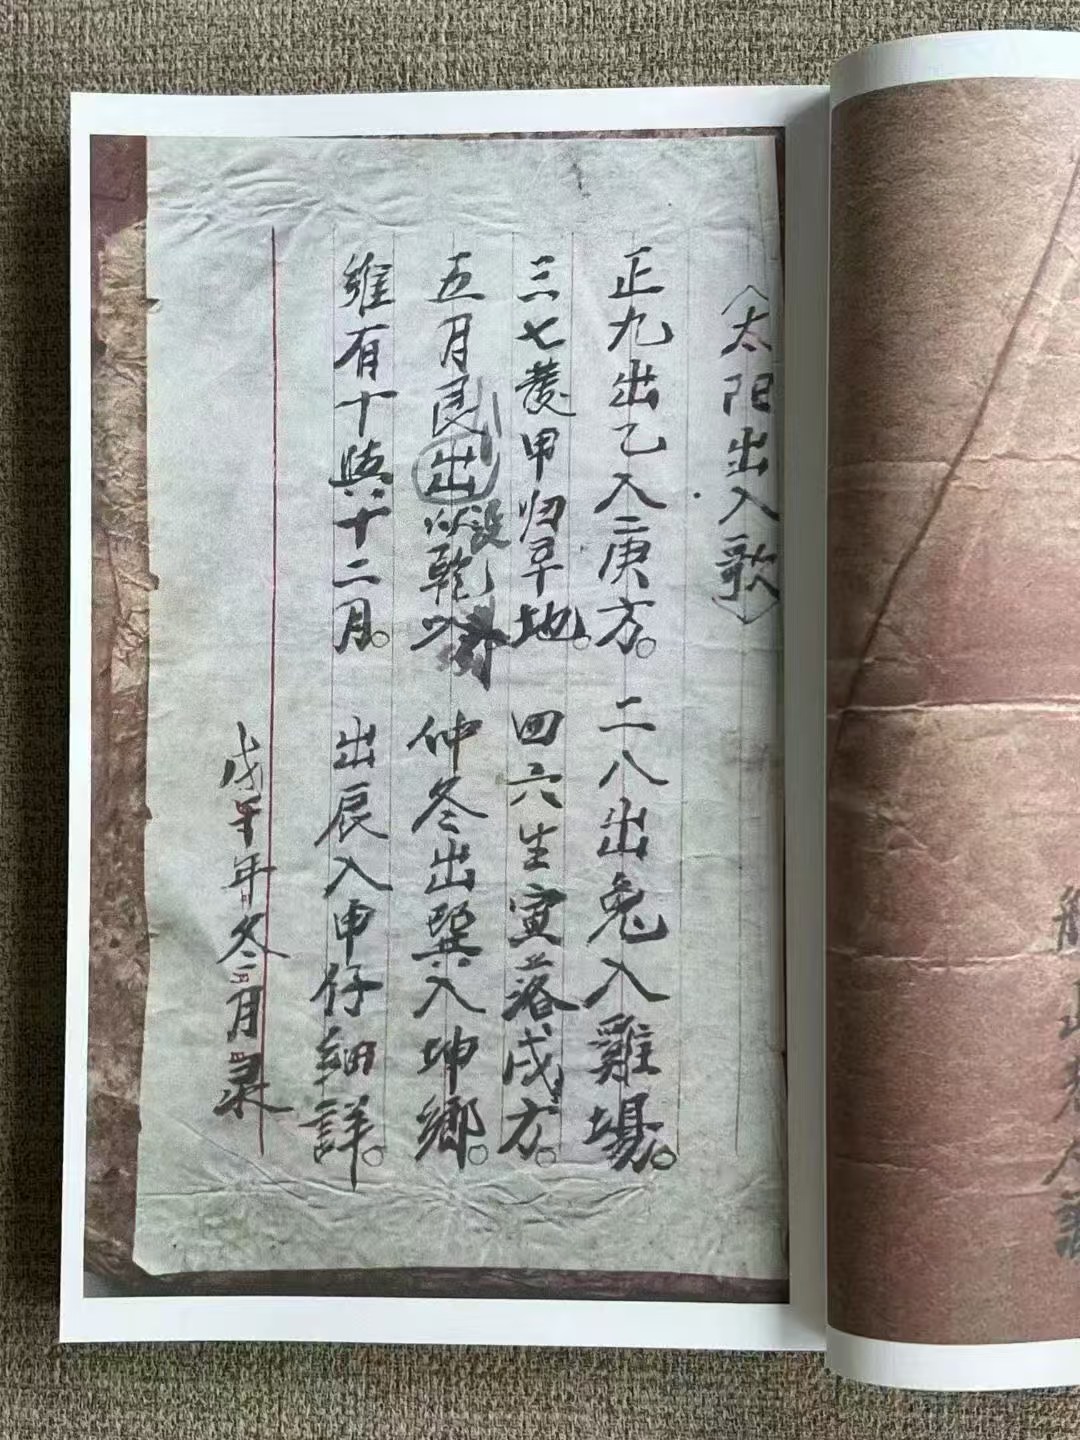 〈太阳出入歌〉
正九出乙入庚方。二八出兔入雞場。
三七發甲归辛地。四六生寅落戌方。
五月艮出以没乾 仲冬出巽入坤鄉。
維有十與十二月。出辰入申仔細詳。
戊午年冬月录